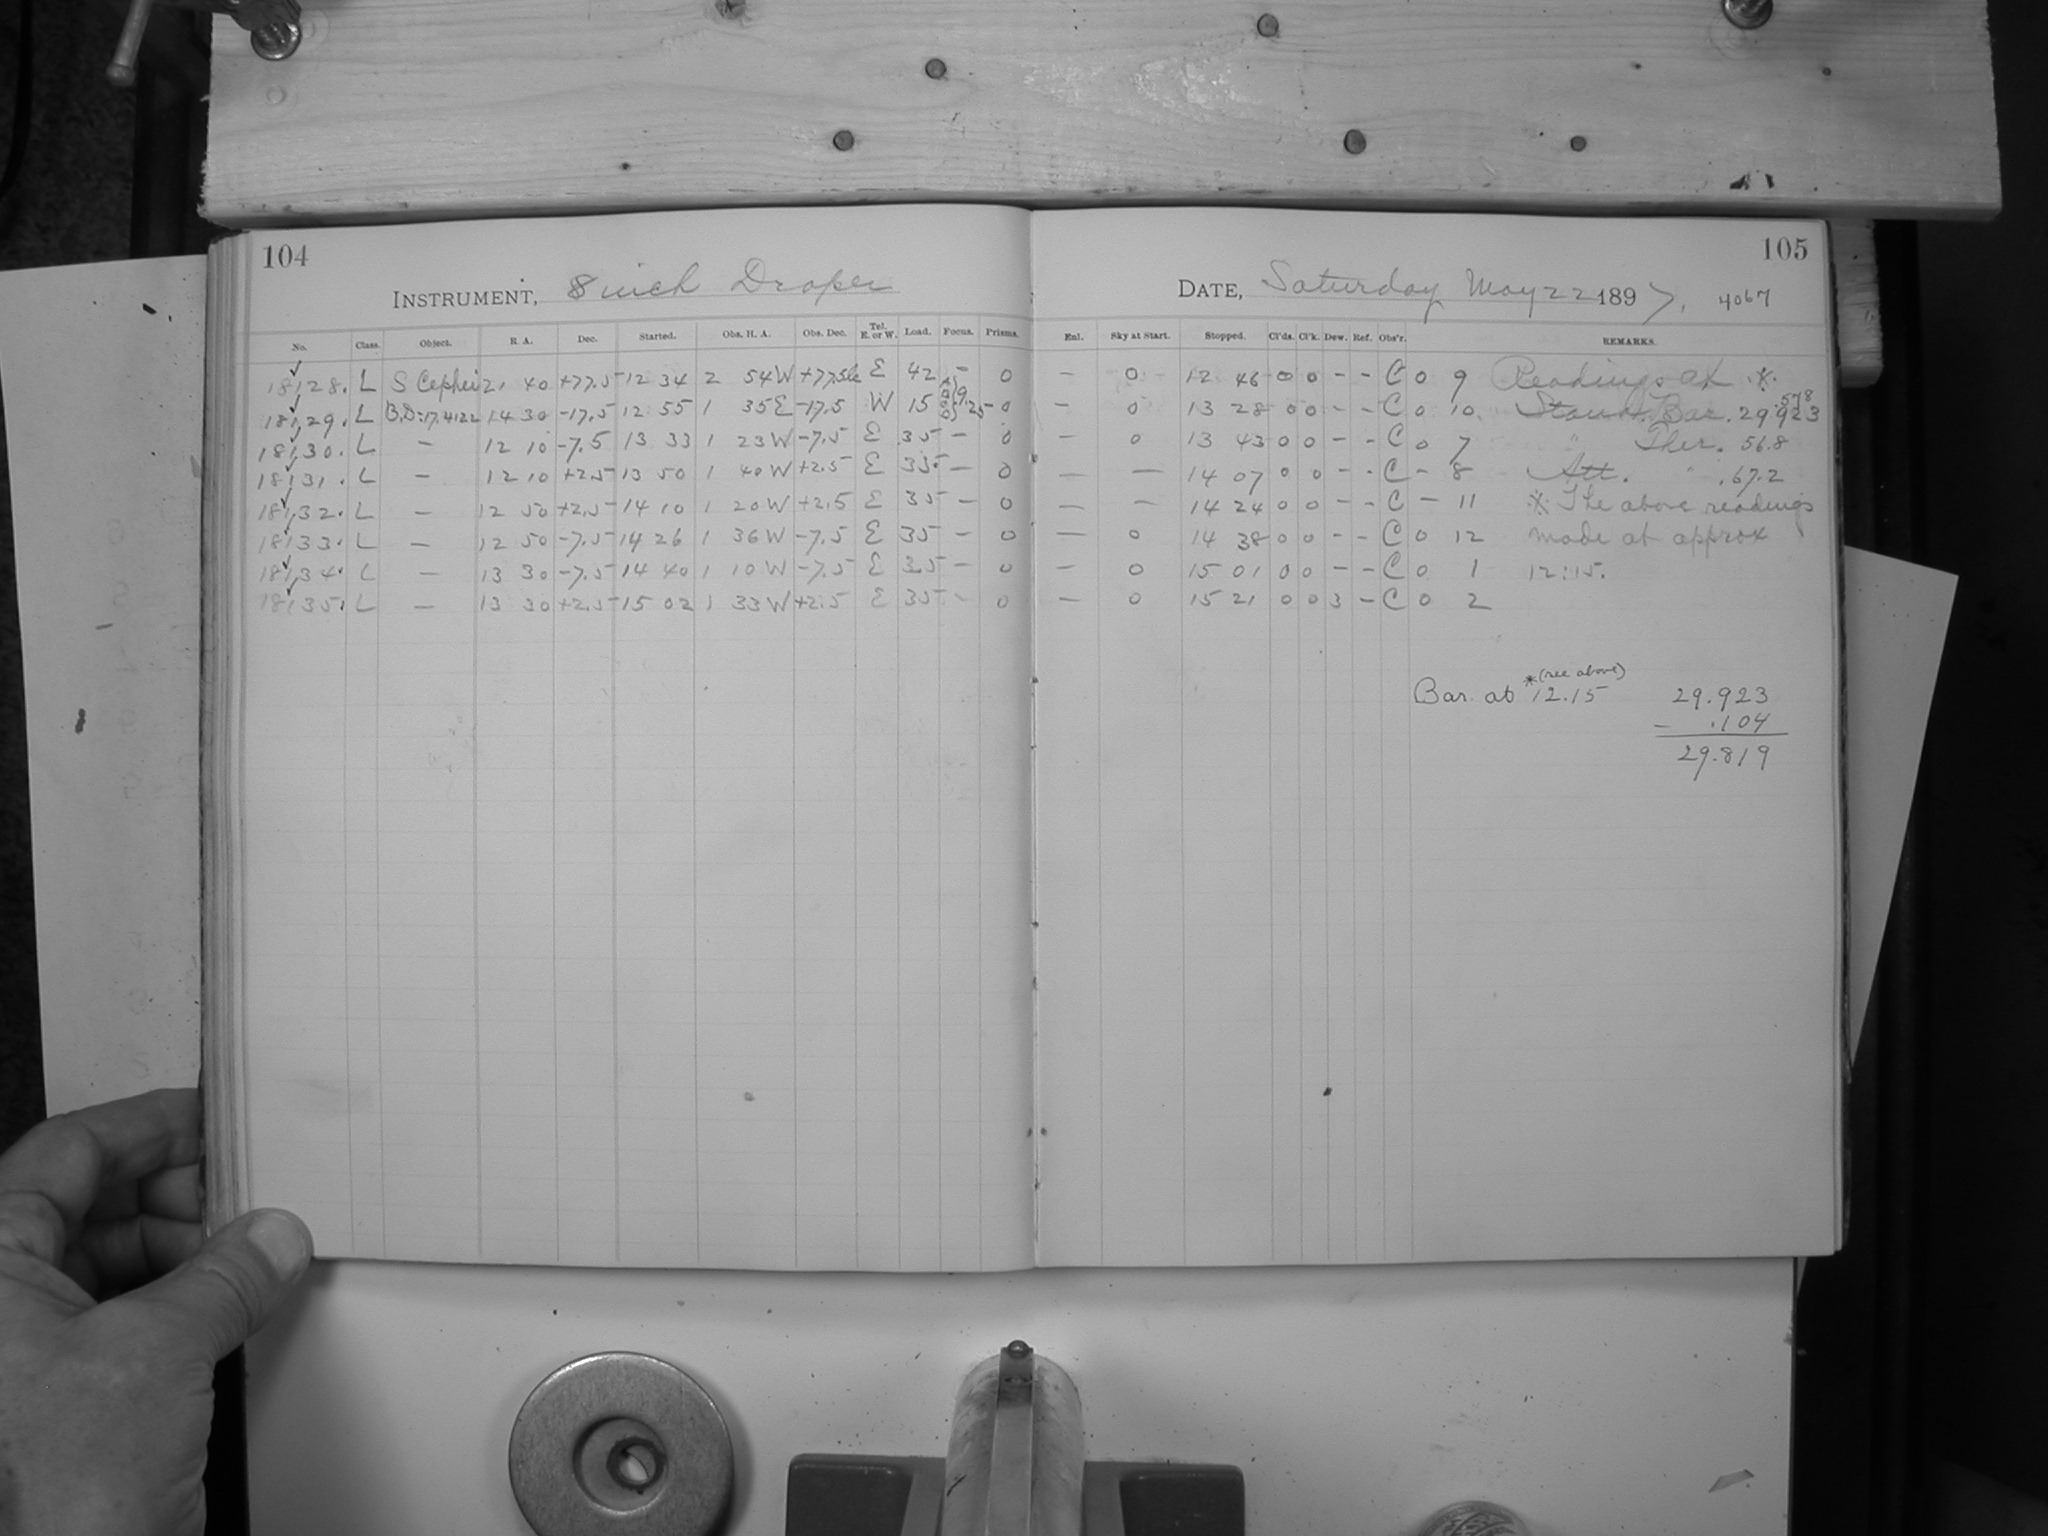 104
INSTRUMENT, 8 inch Draper
No. Class. Object. R. A. Dec. Started. Obs. H. A. Obs. Dec. Tel. E. or W. Load. Focus. Prisms.
18128. L S Cephei 21 40 +77.5 12 34 2 54 W +77.5 E 42 – 0
18129. L B.D.-17.4122 14 30 -17.5 12 55 1 35 E -17.5 W 15 0
18130. L – 12 10 -7.5 13 33 1 23 W -7.5 E 35 – 0
18131. L – 12 10 +2.5 13 50 1 40 W +2.5 E 35 – 0
18132. L – 12 50 +2.5 14 10 1 20 W +2.5 E 35 – 0
18133. L – 12 50 -7.5 14 26 1 36 W -7.5 E 35 – 0
18134. L – 13 30 -7.5 14 40 1 10 W -7.5 E 35 – 0
18135. L – 13 30 +2.5 15 02 1 33 W +2.5 E 35 – 0
105
DATE, Saturday May 22 1897, 4067
Enl. Sky at Start. Stopped. Cl'ds. Cl'k. Dew. Ref. Obs'r. REMARKS.
– 0 12 46 0 0 – – C 0 9 Readings at *.
.578
– 0 13 28 0 0 – – C 0 10 Stand. Bar. 29.923
– 0 13 43 0 0 – – C 0 7 " Ther. 56.8
– – 14 07 0 0 – – C – 8 Att. " .67.2
– – 14 24 0 0 – – C – 11 * The above readings
– 0 14 38 0 0 – – C 0 12 made at approx
– 0 15 01 0 0 – – C 0 1 12:15.
– 0 15 21 0 0 3 – C 0 2
*(see above)
Bar. at 12.15 29.923
– .104
29.819